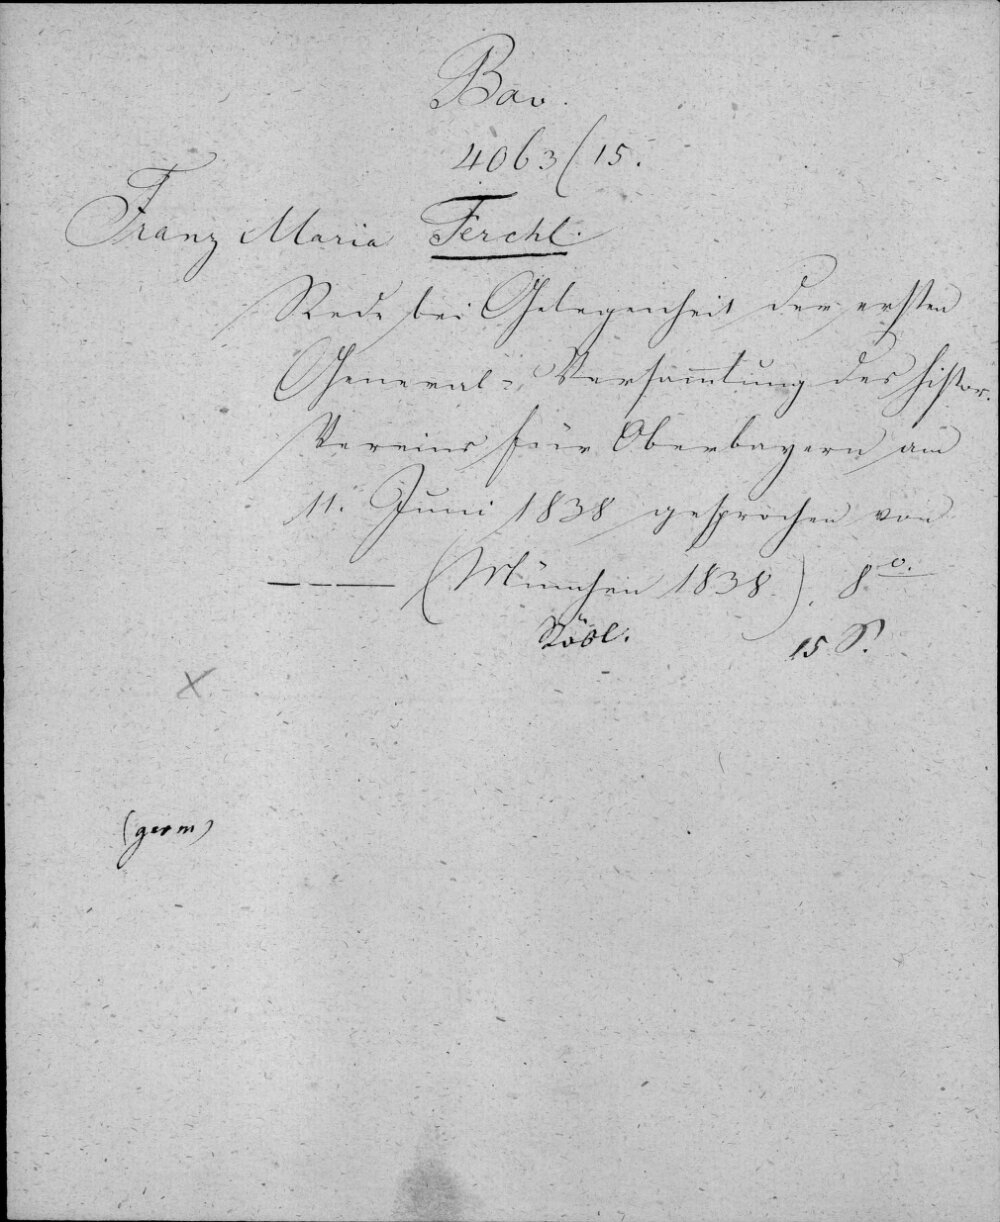 Bav.
4063/15.
Franz Maria Ferchl.
Rede bei Gelegenheit der ersten
General-Versammlung des histor.
Vereins für Oberbayern am
11. Juni 1838 gesprochen von
——— (München 1838). 8º.
Rösl. 15 S.
(germ)